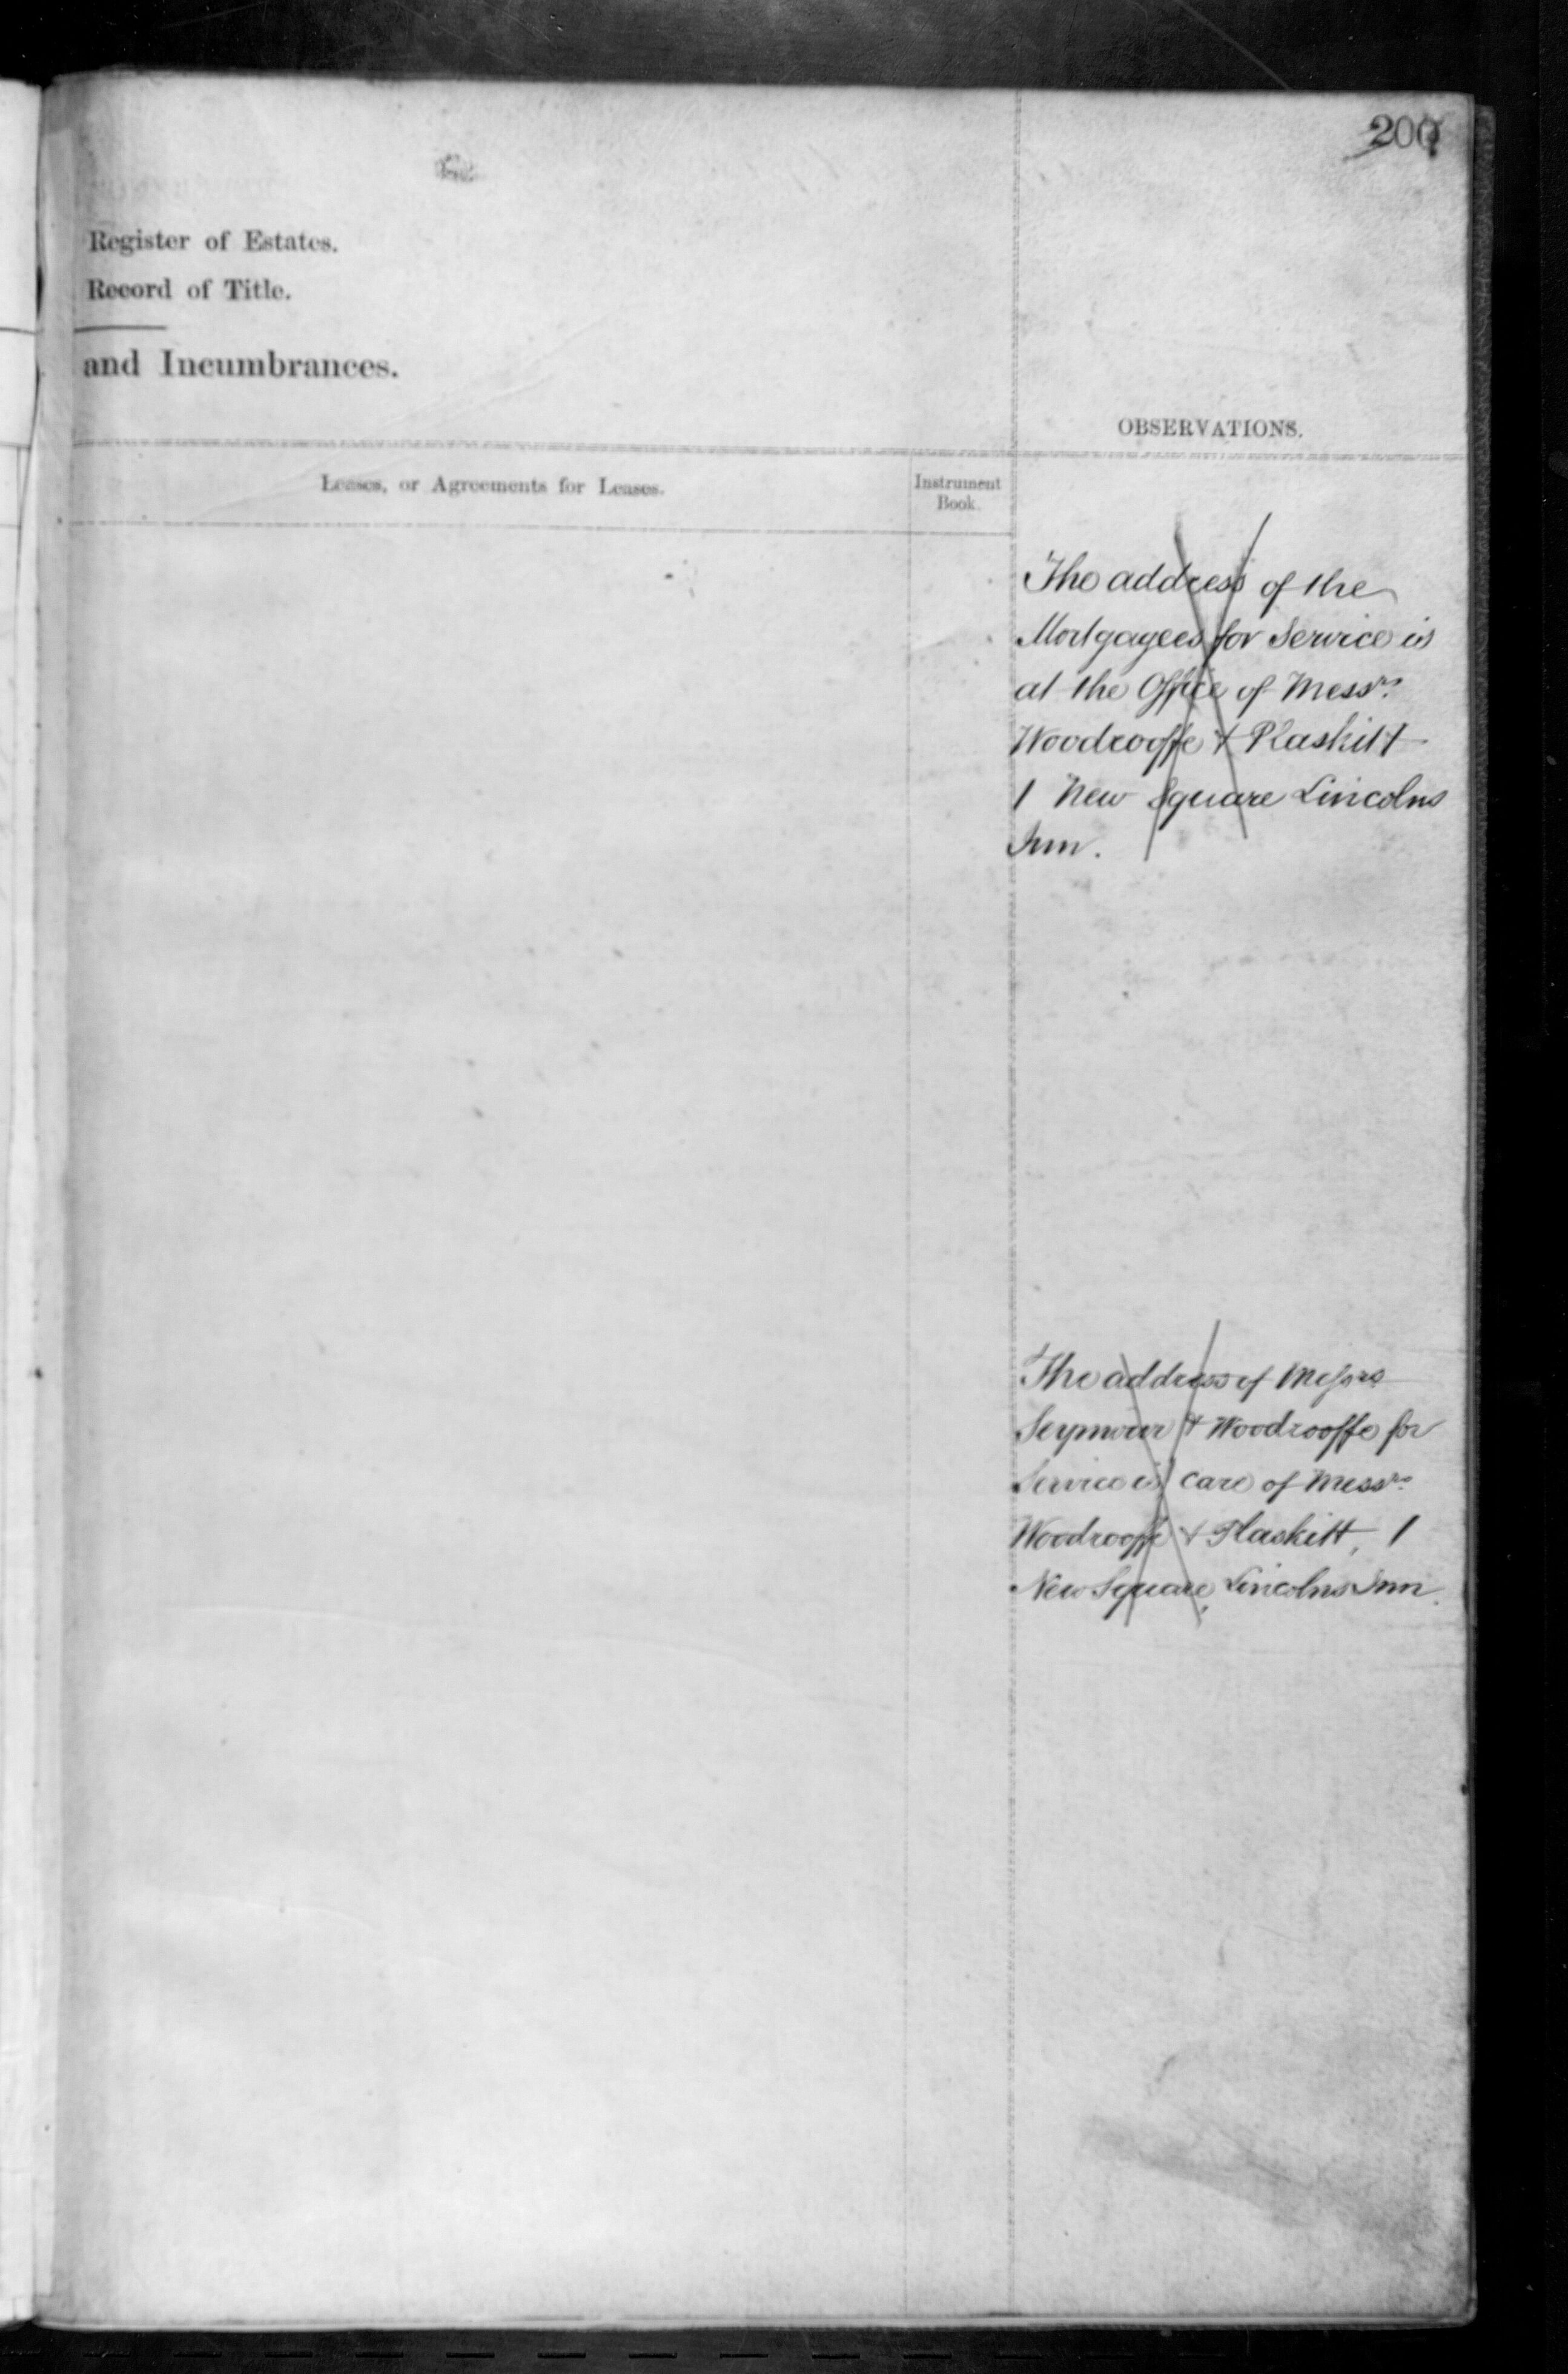 Register of Estates.
Record of Title.
and Incumbrances.
OBSERVATIONS.
Leases, or Agreements for Leases.
Instrument
Book.
The address of the
Mortgagees for Service is
at the Office of Messrs.
Woodrooffe & Plaskitt
1 New Square Lincolns
Inn.
The address of Messrs
Seymour & Woodrooffe for
Service is care of Messrs.
Woodrooffe & Plaskitt, 1
New Square, Lincolns Inn.